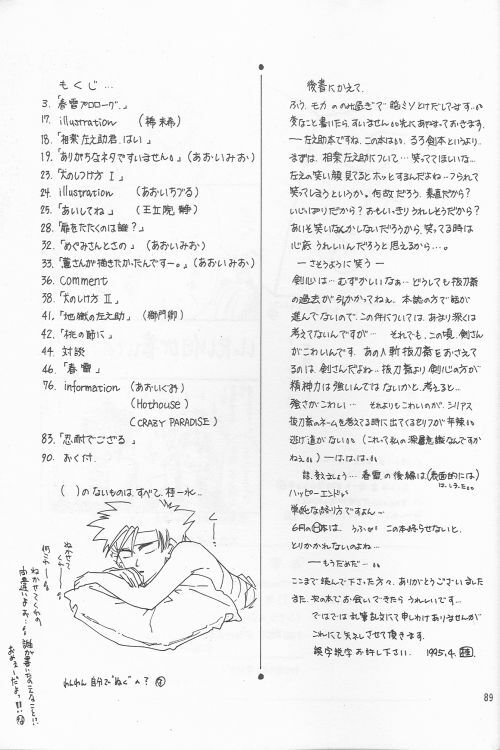 もくじ…
3.「春雷プロローグ.」
17. illustration (柿 末希)
18.「相楽左之助君.はい」
19.「ありがちなネタですいません。」(あおいみお)
23.「犬のしつけ方 I」
24. illustration (あおいちづる)
25.「あいしてね」(王立院 静)
28.「扉をたたくのは誰?」
32.「めぐみさんとさの」(あおいみお)
33.「薫さんが描きたかったんですー。」(あおいみお)
36. comment
38.「犬のしつけ方 II」
41.「地獄の左之助」(御門卿)
42.「桃の節に」
44. 対談
46.「春雷」
76. information (あおいくみ)
(HotHouse)
(CRAZY PARADISE)
83.「忍耐でござる」
90. おく付.
( )のないものは、すべて、柊一水..
ねかせて
くてー
何こやーー。
ねかせてくれの
間違いよお…。誰が書いたのこんなこと!!
おめぇーだよっ!!!
わんわん 自分で"ぬぐ"へ?
後書にかえて.
ふう、モカののみ過ぎで脳ミソとけだしてます…。
変なこと書いたら、すいません。先にあやまっておきます.
―左之助本ですね、この本は。るろ剣本というより。
まずは、相楽左之助について…笑っててほしいな…
左之の笑い顔見てるとホッとするんだよね…つられて
笑ってしまうというか。何故だろう。素直だから?
いじっぱりだから?おもいっきりうれしそうだから?
あいそ笑いなんかしないだろうから、笑ってる時は
心底うれしいんだろうと思えるから…。
―さそうように笑う―
剣心は…むずかしいなぁ…どうしても抜刀斎
の過去が引っかかってねえ、本誌の方で話が
進んでないので、この件については、あまり深くは
考えてないんですが… それでも、この頃、剣さん
がこわいんです.あの人斬抜刀斎をおさえて
るのは、剣さんだよね…抜刀斎より剣心の方が
精神力は強いんではないかと、考えると…
強さがこわい… それよりもこわいのが、シリアス
抜刀斎のネームを考えてる時に出てくるセリフが年殊い
逃げ道がない。(これって私の深層意識なんですか
ねぇ。)―は.は.は.。
話、変えましょう… 春雷の後編は(表面的には)
は、しるした。。
ハッピーエンド。い
単純な終り方ですよん…
6月の本は、うふふ この本終らせないと、
とりかかれないのよね…
―もうだめだ― 。
ここまで読んで下さった方々、ありがとうございました
また、次の本でお会いできたらうれしいです…
ではでは乱筆乱文にて申しわけありませんが
これにて失礼させて頂きます.
誤字脱字お許し下さい. 1995.4.
89